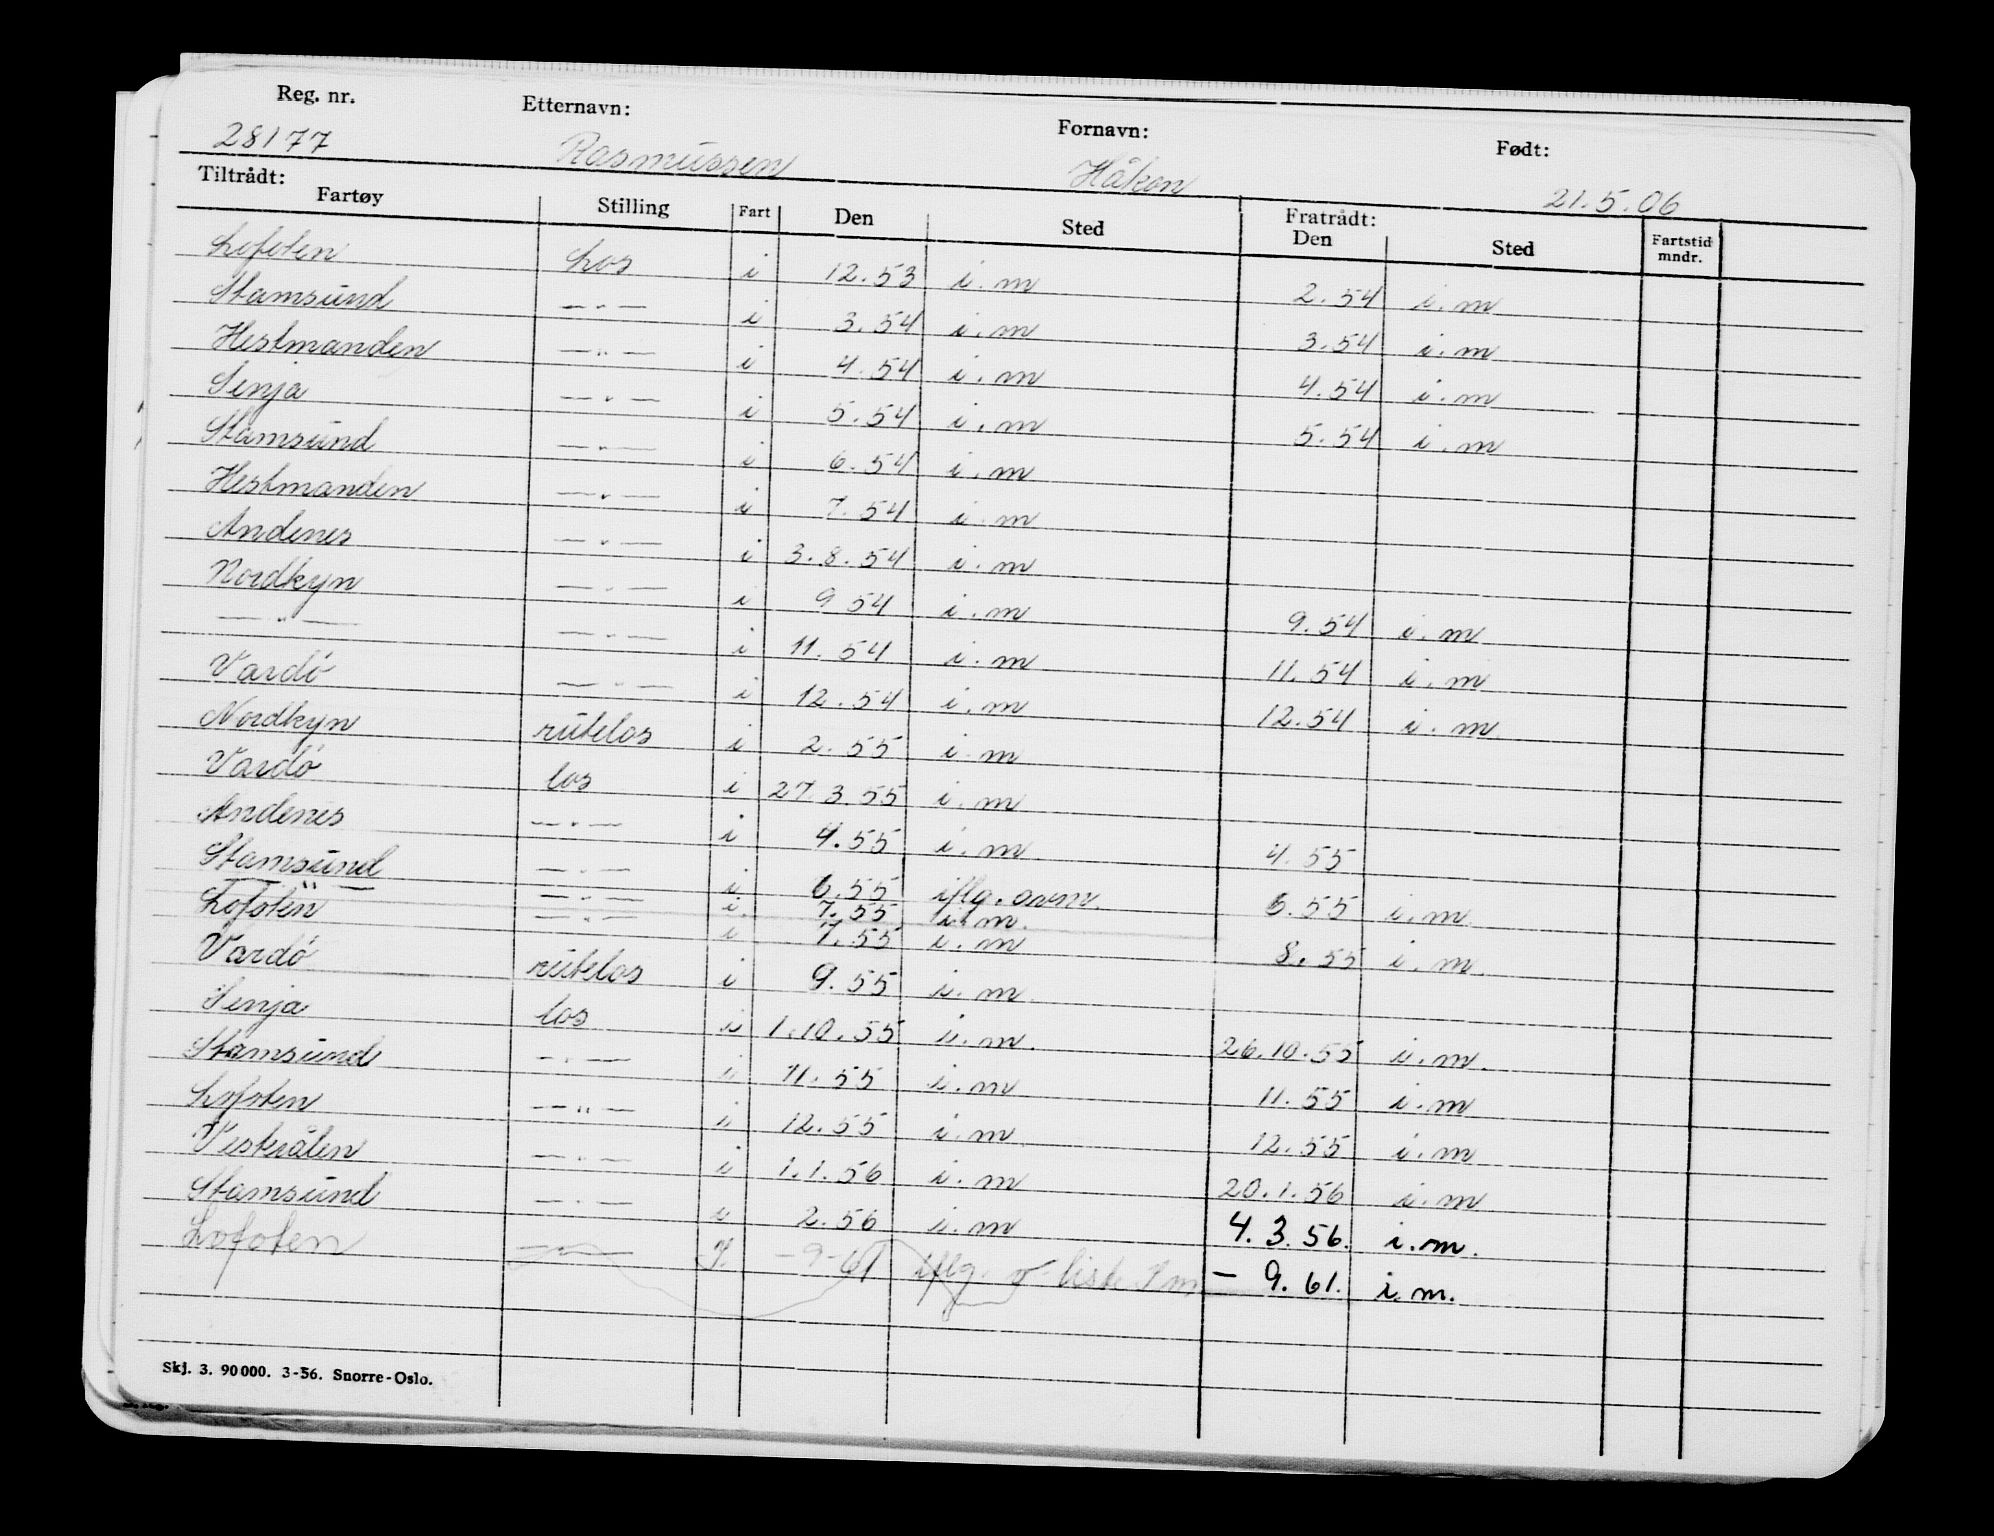 Reg. nr. Etternavn: Fornavn: Født:
28177 Rasmussen Håkon 21.5.06
Tiltrådt: Fratrådt:
Fartøy Stilling Fart Den Sted Den Sted Fartstid mndr.
Lofoten Los i 12.53 i.m 2.54 i.m
Stamsund —"— i 3.54 i.m 3.54 i.m
Hestmanden —"— i 4.54 i.m 4.54 i.m
Senja —"— i 5.54 i.m 5.54 i.m
Stamsund —"— i 6.54 i.m
Hestmanden —"— i 7.54 i.m
Andenes —"— i 3.8.54 i.m
Nordkyn —"— i 9 54 i.m 9.54 i.m
—"— —"— i 11.54 i.m 11.54 i.m
Vardö —"— i 12.54 i.m 12.54 i.m
Nordkyn rutelos i 2.55 i.m
Vardö los i 27.3.55 i.m
Andenes —"— i 4.55 i.m. 4.55
Stamsund —"— i 6.55 iflg. ovm. 6.55 i.m.
—"— —"— i. 7.55 i.m.
Lofoten —"— i 7.55 i.m 8.55 i.m.
Vardö rutelos i 9.55 i.m.
Senja los i 1.10.55 i.m. 26.10.55 i.m.
Stamsund —"— i 11.55 i.m 11.55 i.m
Lofoten —"— i 12.55 i.m 12.55 i.m
Vesterålen —"— i 1.1.56 i.m 20.1.56 i.m
Stamsund —"— i 2.56 i.m 4.3.56. i.m.
Lofoten —"— -9-61 iflg. liste — 9.61. i.m.
Skj. 3. 90000. 3-56. Snorre-Oslo.